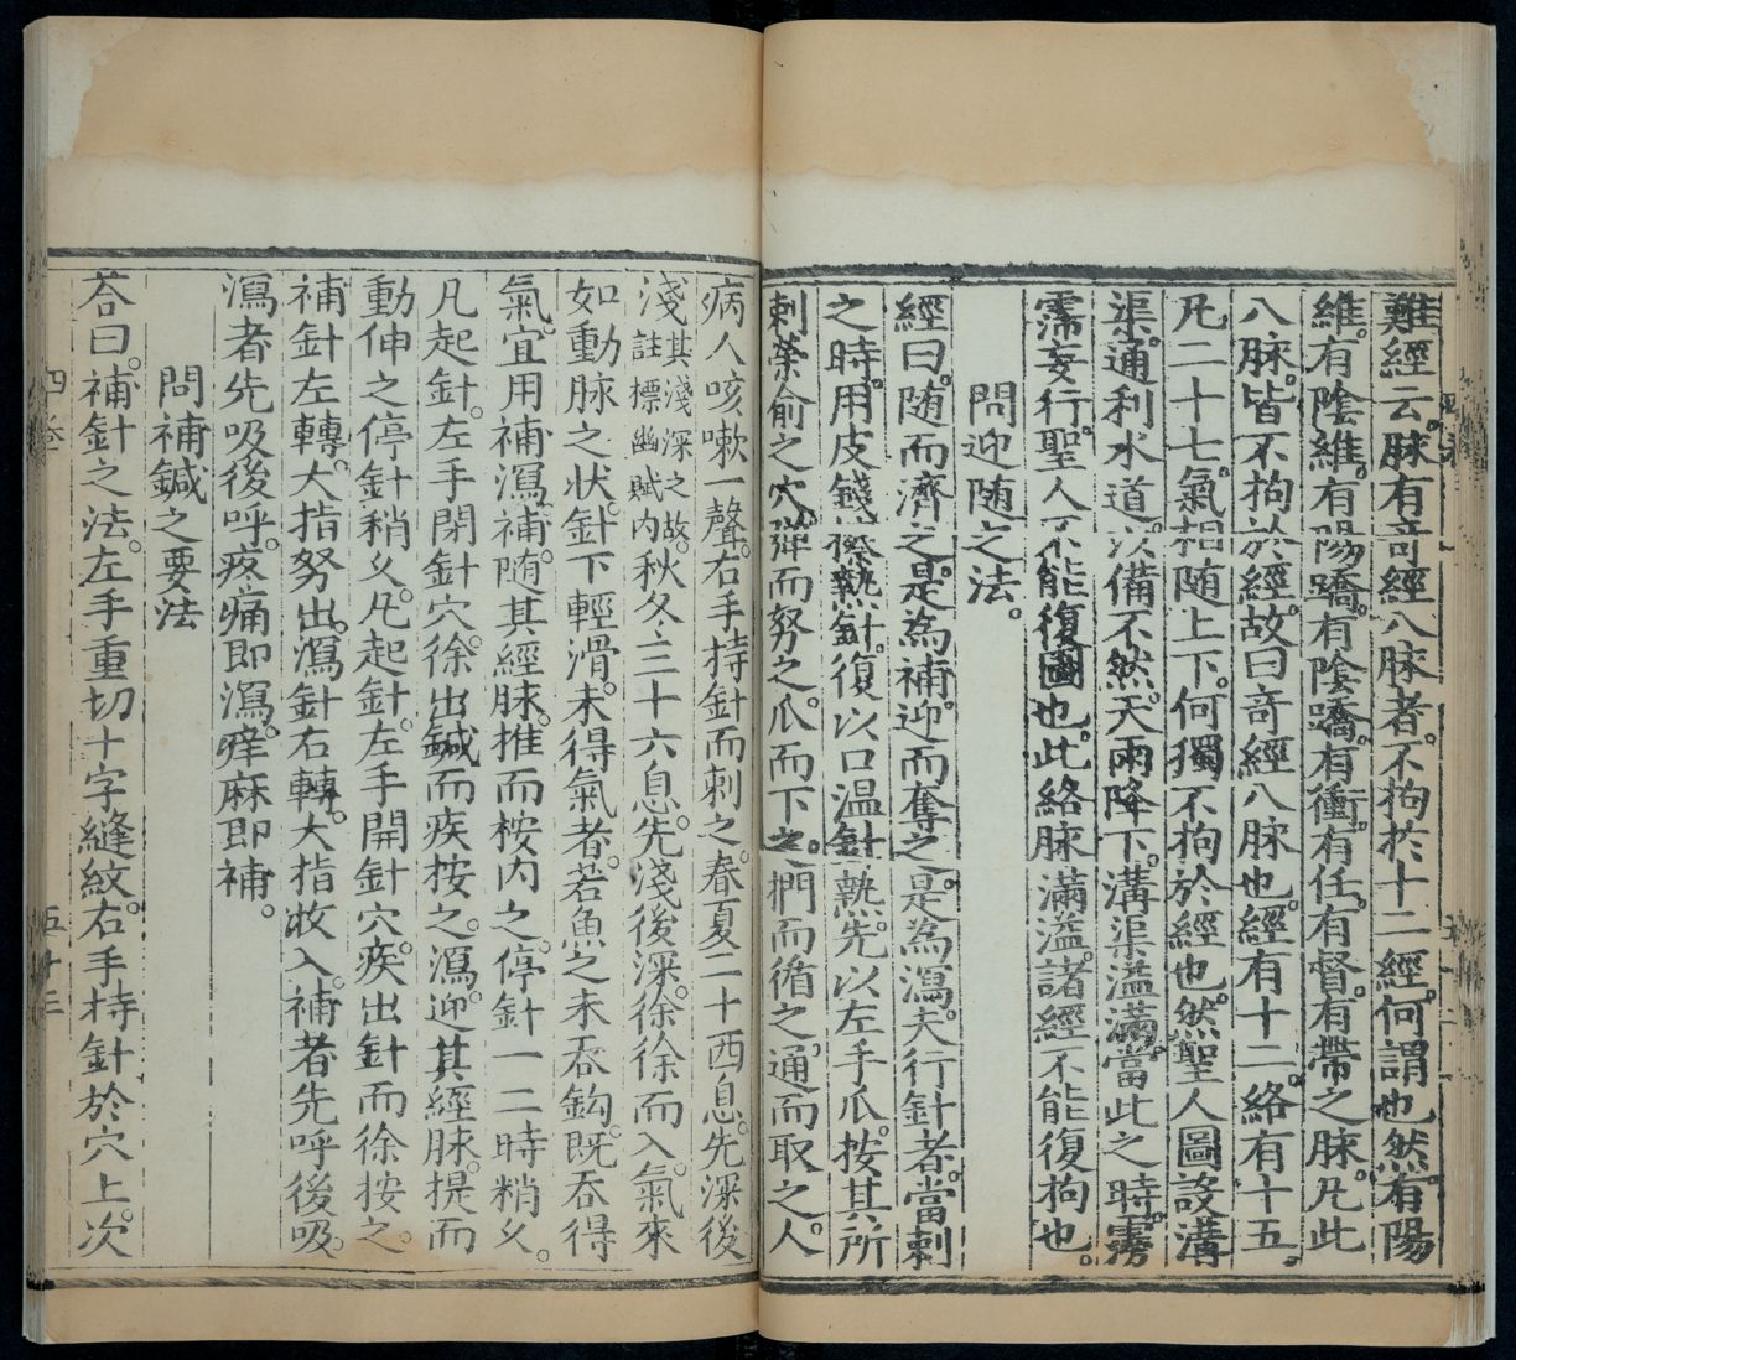 難經云。脉有奇經八脉者。不拘於十二經。何謂也。然。有陽
維。有陰維。有陽蹻。有陰蹻。有衝。有任。有督。有帶之脉。凢此
八脉。皆不拘於經。故曰奇經八脉也。經有十二。絡有十五。
凢二十七。氣相随上下。何獨不拘於經也。然聖人圖設溝
渠。通利水道。以備不然。天雨降下。溝渠溢滿。當此之時。霶
霈妄行。聖人不能復圖也。此絡脉滿溢。諸經不能復拘也。
問迎随之法。
經曰。随而濟之。是為補。迎而奪之。是為瀉。夫行針者。當刺
之時。用皮錢擦熱針。復以口温針熱。先以左手爪。按其所
刺榮俞之穴。弹而努之。爪而下之。捫而循之。通而取之。人。
病人咳嗽一聲。右手持針而刺之。春夏二十四息。先深後
淺其淺深之故。註標幽賦内秋冬三十六息。先淺後深。徐徐而入。氣來
如動脉之状。針下輕滑。未得氣者。若魚之未吞鈎。既吞得
氣。宜用補瀉。補。随其經脉。推而桉内之。停針一二時稍乆。
凡起針。左手閉針穴。徐出鍼而疾按之。瀉。迎其經脉。提而
動伸之。停針稍乆。凢起針。左手開針穴。疾出針而徐按之。
補針左轉。大指努出。瀉針右轉。大指收入。補者先呼後吸。
瀉者先吸後呼。疼痛即瀉。痒麻即補。
問補鍼之要法
荅曰。補針之法。左手重切十字縫紋。右手持針於穴上。次
四卷
五十三